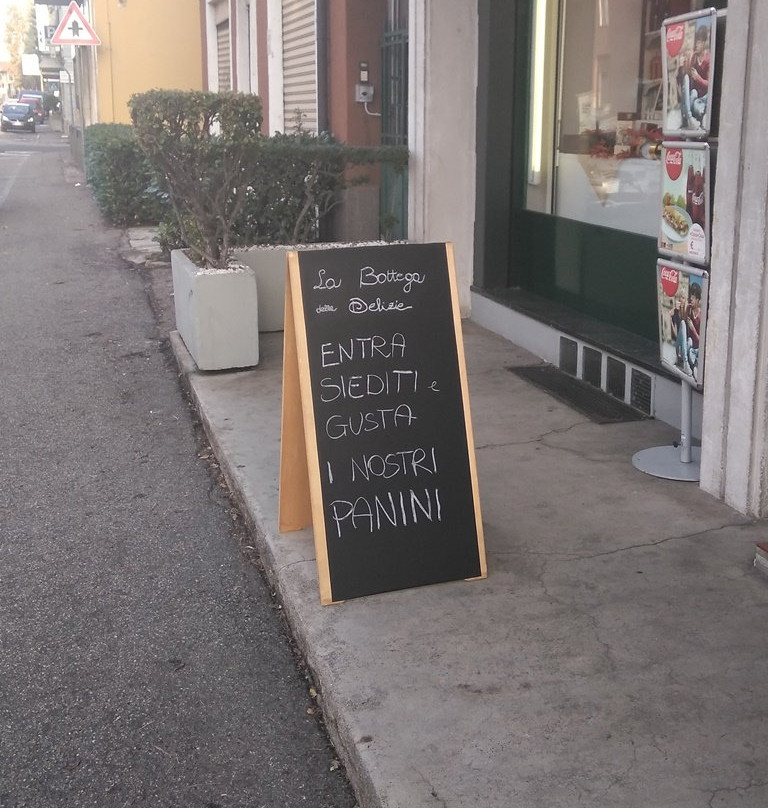 La Bottega
delle Delizie
ENTRA
SIEDITI e
GUSTA
I NOSTRI
PANINI
Coca-Cola
Coca-Cola
Coca-Cola